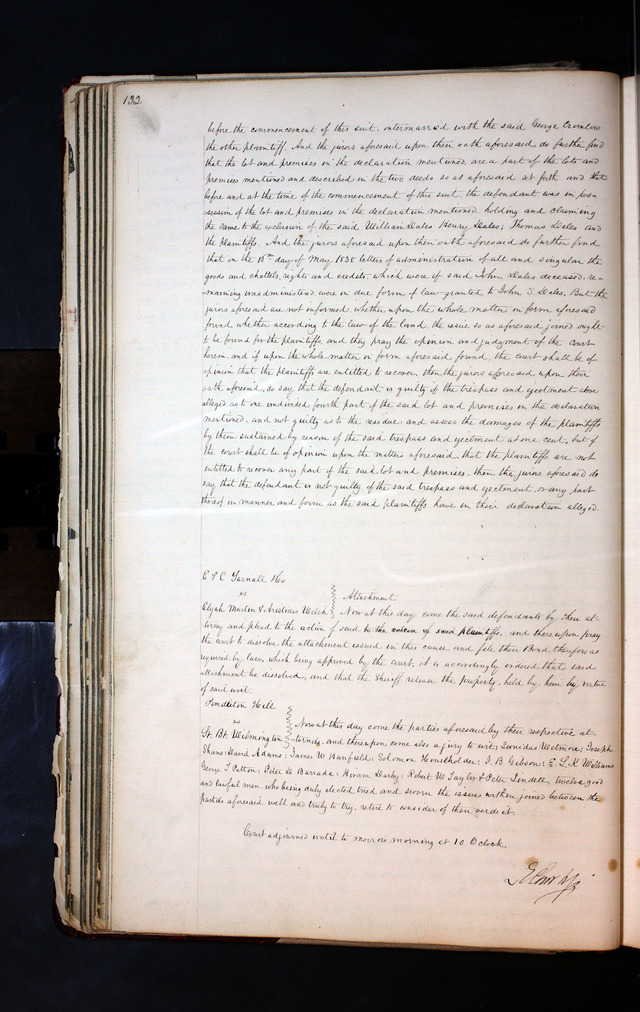 132
before the commencement of this suit, intermarried with the said George Cromlow
the other plaintiff. And the jurors aforesaid upon their oath aforesaid do further find
that the lot and premises in the declaration mentioned, are a part of the lots and
premises mentioned and described in the two deeds so as aforesaid set forth and that
before and at the time of the commencement of this suit, the defendant was in pos-
session of the lot and premises in the declaration mentioned, holding and claiming
the same to the exclusion of the said William Dales, Henry Dales, Thomas Dales and
the plaintiffs. And the jurors aforesaid upon their oath aforesaid do further find
that on the 15th day of May 1838 letters of administration of all and singular the
goods and chattels, rights and credits, which were of said John Dales, deceased, re-
maining unadministered, were in due form of law granted to John Dales. But the
jurors aforesaid are not informed, whether upon the whole matter in form aforesaid
found, whether according to the law of the land, the issue so as aforesaid joined ought
to be found for the plaintiffs, and they pray the opinion and judgment of the court
herein, and if upon the whole matter in form aforesaid found, the court shall be of
opinion that the plaintiffs are entitled to recover, then the jurors aforesaid upon their
oath aforesaid, do say, that the defendant is guilty of the trespass and ejectment above
alleged, as to one undivided fourth part of the said lot and premises in the declaration
mentioned, and not guilty as to the residue, and assess the damages of the plaintiffs
by them sustained by reason of the said trespass and ejectment at one cent, but if
the court shall be of opinion upon the matters aforesaid, that the plaintiff are not
entitled to recover any part of the said lot and premises, then the jurors aforesaid do
say that the defendant is not guilty of the said trespass and ejectment, or any part
thereof in manner and form as the said plaintiffs have in their declaration alleged.
E & C Yarnall & Co
vs
Attachment
Elijah Martin & Welch
Now at this day come the said defendants by their at-
torney and plead to the action of said plaintiffs, and thereupon pray
the court to dissolve the attachment issued in this cause and file their Bond therefor as
required by law, which being approved by the court, it is accordingly ordered that said
attachment be dissolved, and that the Sheriff release the property, held by him by virtue
of said writ.
Pendleton Hill
vs
St. Bt. Wilmington
Now at this day come the parties aforesaid by their respective at-
tornies, and thereupon come also a jury to wit, Leonidas Wetmore; Joseph
Shans; David Adams; James W Banfield; Solomon Householder; J. B Gibson; E. L. R Williams
George T Patton; Peter D Barrada; Hiram Darby; Robert W Taylor & Peter Lindell, twelve good
and lawful men, who being duly elected tried and sworn the issues within joined between the
parties aforesaid well and truly to try, retire to consider of their verdict.
Court adjourned until to morrow morning at 10 OClock.